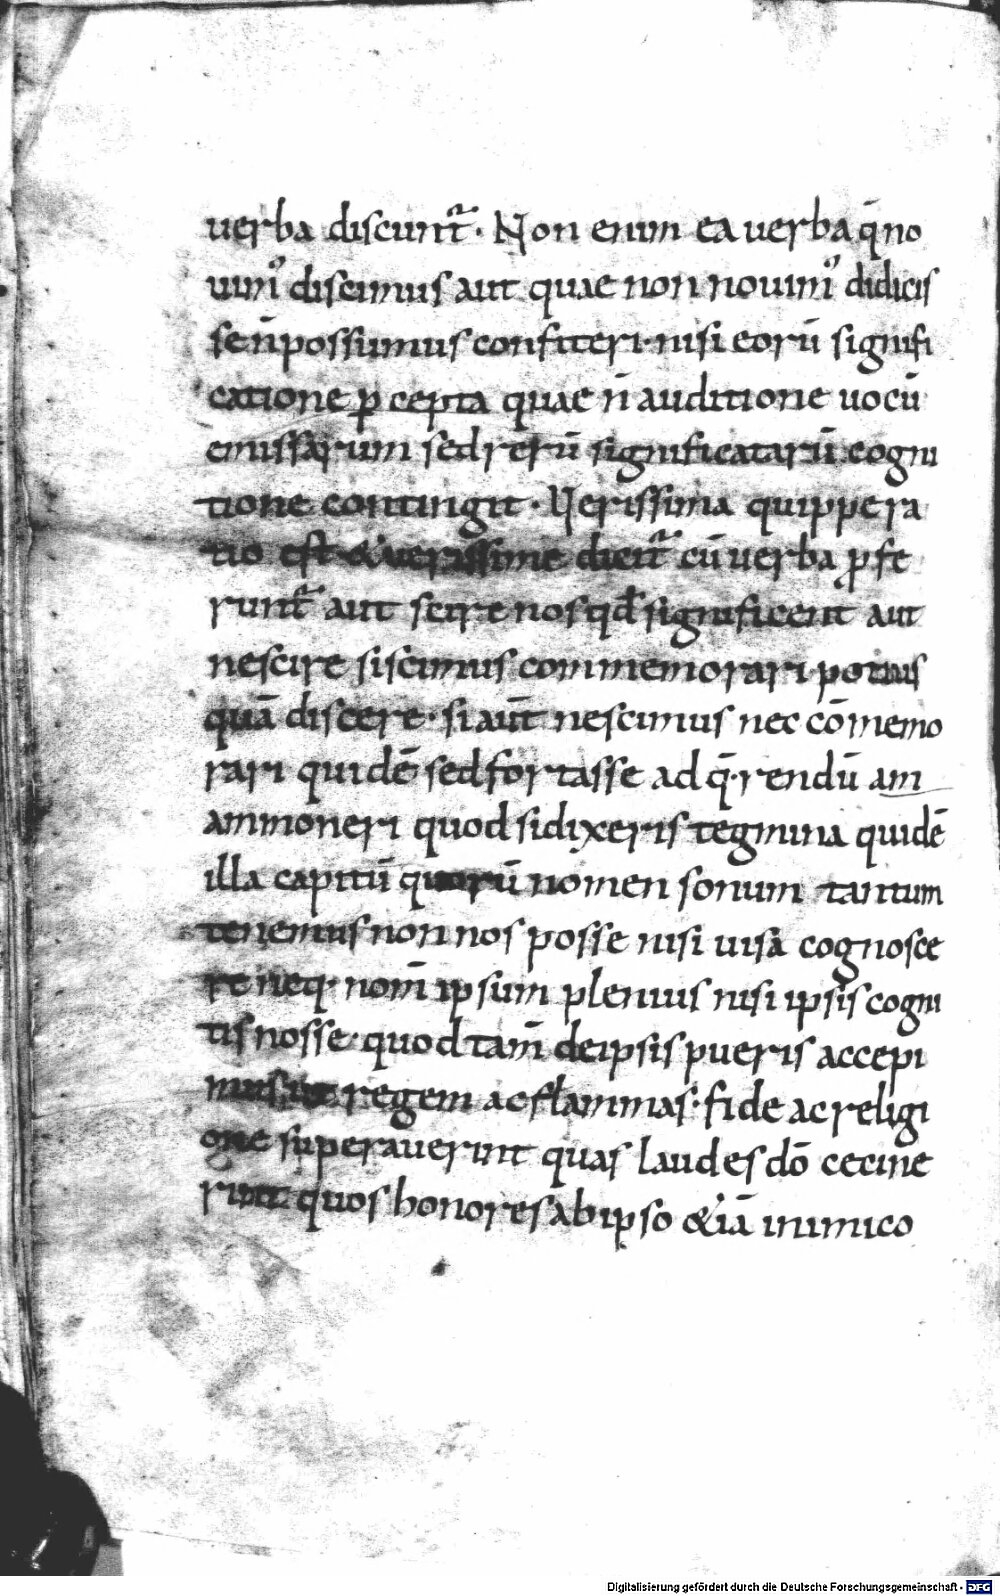 uerba discunt᷑. Non enim ea uerba q̄ no
uimꝰ discimus aut quae non nouimꝰ didicis
se n̄ possumus confiteri· nisi eorū signifi
catione ꝑcepta quae n̄ auditione uocū
emissarum sed rerū significatarū cogni
tione contingit· Uerissima quippe ra
tio est & uerissime dicit᷑ cū uerba ꝓfe
runt᷑ aut scire nos qd̄ significent aut
nescire si scimus commemorari potius
quā discere· si aūt nescimus nec cōmemo
rari quidē sed fortasse ad q̄rendū am
ammoneri quod si dixeris tegmina quidē
illa capitū quorū nomen sonum tantum
tenemus non nos posse nisi uisa cognosce
re neq· nom̄ ipsum plenius nisi ipsis cogni
tis nosse· quod tam̄ de ipsis pueris accepi
mus ut regem ac flammas· fide ac religi
one superauerint quas laudes dō cecine
runt quos honores ab ipso &iā inimico
Digitalisierung gefördert durch die Deutsche Forschungsgemeinschaft - DFG